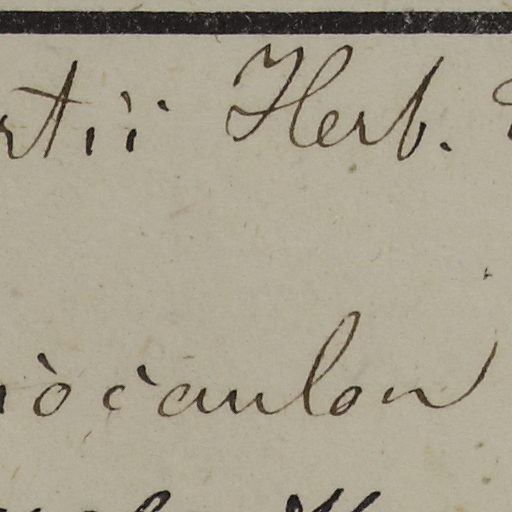 rtii Herb.
iocaulon